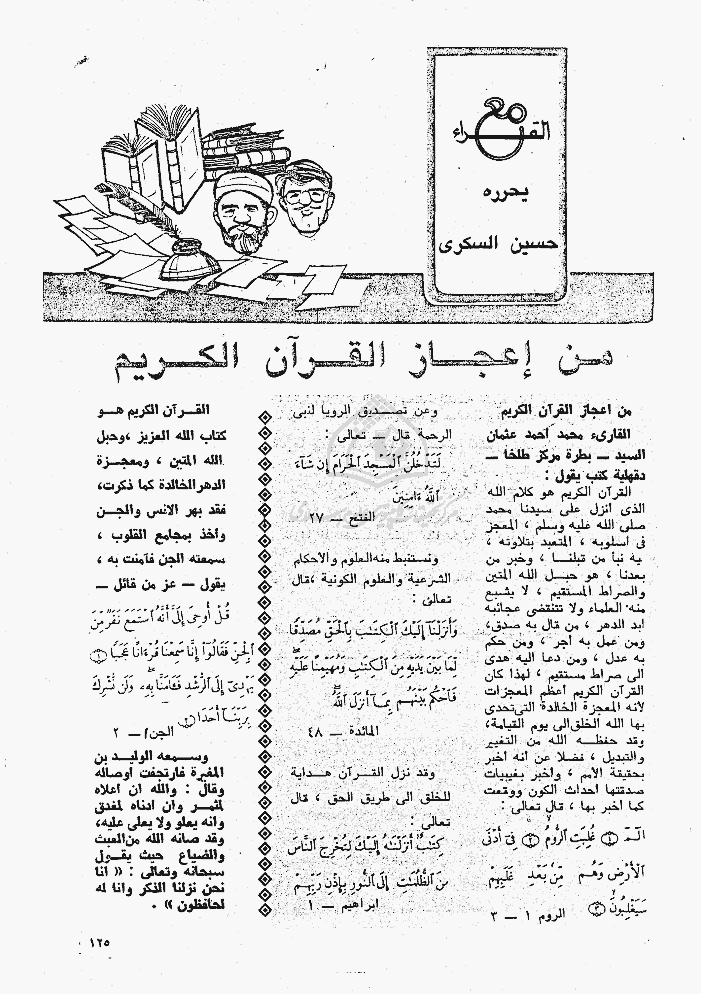 مع
القراء
يحرره
حسين السكرى
من إعجاز القرآن الكريم
من اعجاز القرآن الكريم
القارىء محمد أحمد عثمان
السيد — بطرة مركز طلخا —
دقهلية كتب يقول :
القرآن الكريم هو كلام الله
الذى انزل على سيدنا محمد
صلى الله عليه وسلم ، المعجز
فى أسلوبه ، المتعبد بتلاوته ،
فيه نبأ من قبلنا ، وخبر من
بعدنا ، هو حبل الله المتين
والصراط المستقيم ، لا يشبع
منه العلماء ولا تنقضى عجائبه
أبد الدهر ، من قال به صدق،
ومن عمل به أجر ، ومن حكم
به عدل ، ومن دعا اليه هدى
الى صراط مستقيم ، لهذا كان
القرآن الكريم أعظم المعجزات
لأنه المعجزة الخالدة التى تحدى
بها الله الخلق الى يوم القيامة،
وقد حفظه الله من التغيير
والتبديل ، فضلا عن أنه أخبر
بحقيقة الأمم ، وأخبر بغيبيات
صدقتها أحداث الكون ووقعت
كما أخبر بها ، قال تعالى :
الٓمٓ ۝ غُلِبَتِ ٱلرُّومُ ۝ فِىٓ أَدْنَى
ٱلْأَرْضِ وَهُم مِّنۢ بَعْدِ غَلَبِهِمْ
سَيَغْلِبُونَ ۝
الروم ١ — ٣
وعن تصديق الرويا لنبى
الرحمة قال — تعالى :
لَتَدْخُلُنَّ ٱلْمَسْجِدَ ٱلْحَرَامَ إِن شَآءَ
ٱللَّهُ ءَامِنِينَ
الفتح — ٢٧
ونستنبط منه العلوم والأحكام
الشرعية والعلوم الكونية ،قال
تعالى :
وَأَنزَلْنَآ إِلَيْكَ ٱلْكِتَٰبَ بِٱلْحَقِّ مُصَدِّقًا
لِّمَا بَيْنَ يَدَيْهِ مِنَ ٱلْكِتَٰبِ وَمُهَيْمِنًا عَلَيْهِ
فَٱحْكُم بَيْنَهُم بِمَآ أَنزَلَ ٱللَّهُ
المائدة — ٤٨
وقد نزل القرآن هداية
للخلق الى طريق الحق ، قال
تعالى :
كِتَٰبٌ أَنزَلْنَٰهُ إِلَيْكَ لِتُخْرِجَ ٱلنَّاسَ
مِنَ ٱلظُّلُمَٰتِ إِلَى ٱلنُّورِ بِإِذْنِ رَبِّهِمْ
ابراهيم — ١
القرآن الكريم هو
كتاب الله العزيز ،وحبل
الله المتين ، ومعجزة
الدهر الخالدة كما ذكرت،
فقد بهر الانس والجن
وأخذ بمجامع القلوب ،
سمعته الجن فآمنت به ،
يقول — عز من قائل —
قُلْ أُوحِىَ إِلَىَّ أَنَّهُ ٱسْتَمَعَ نَفَرٌ مِّنَ
ٱلْجِنِّ فَقَالُوٓا۟ إِنَّا سَمِعْنَا قُرْءَانًا عَجَبًا ۝
يَهْدِىٓ إِلَى ٱلرُّشْدِ فَـَٔامَنَّا بِهِۦ وَلَن نُّشْرِكَ
بِرَبِّنَآ أَحَدًا ۝
الجن ١ — ٢
وسمعه الوليد بن
المغيرة فارتجفت أوصاله
وقال : والله ان أعلاه
لمثمر وان أدناه لمغدق
وانه يعلو ولا يعلى عليه،
وقد صانه الله من العبث
والضياع حيث يقول
سبحانه وتعالى : « انا
نحن نزلنا الذكر وانا له
لحافظون » .
١٢٥